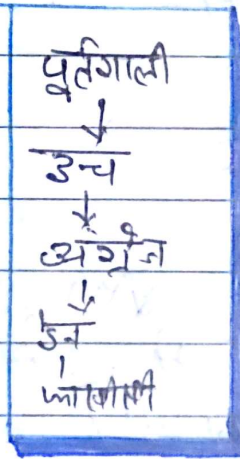 पुर्तगाली
↓
डच
↓
अंग्रेज
↓
डेन
↓
फ्रांसीसी